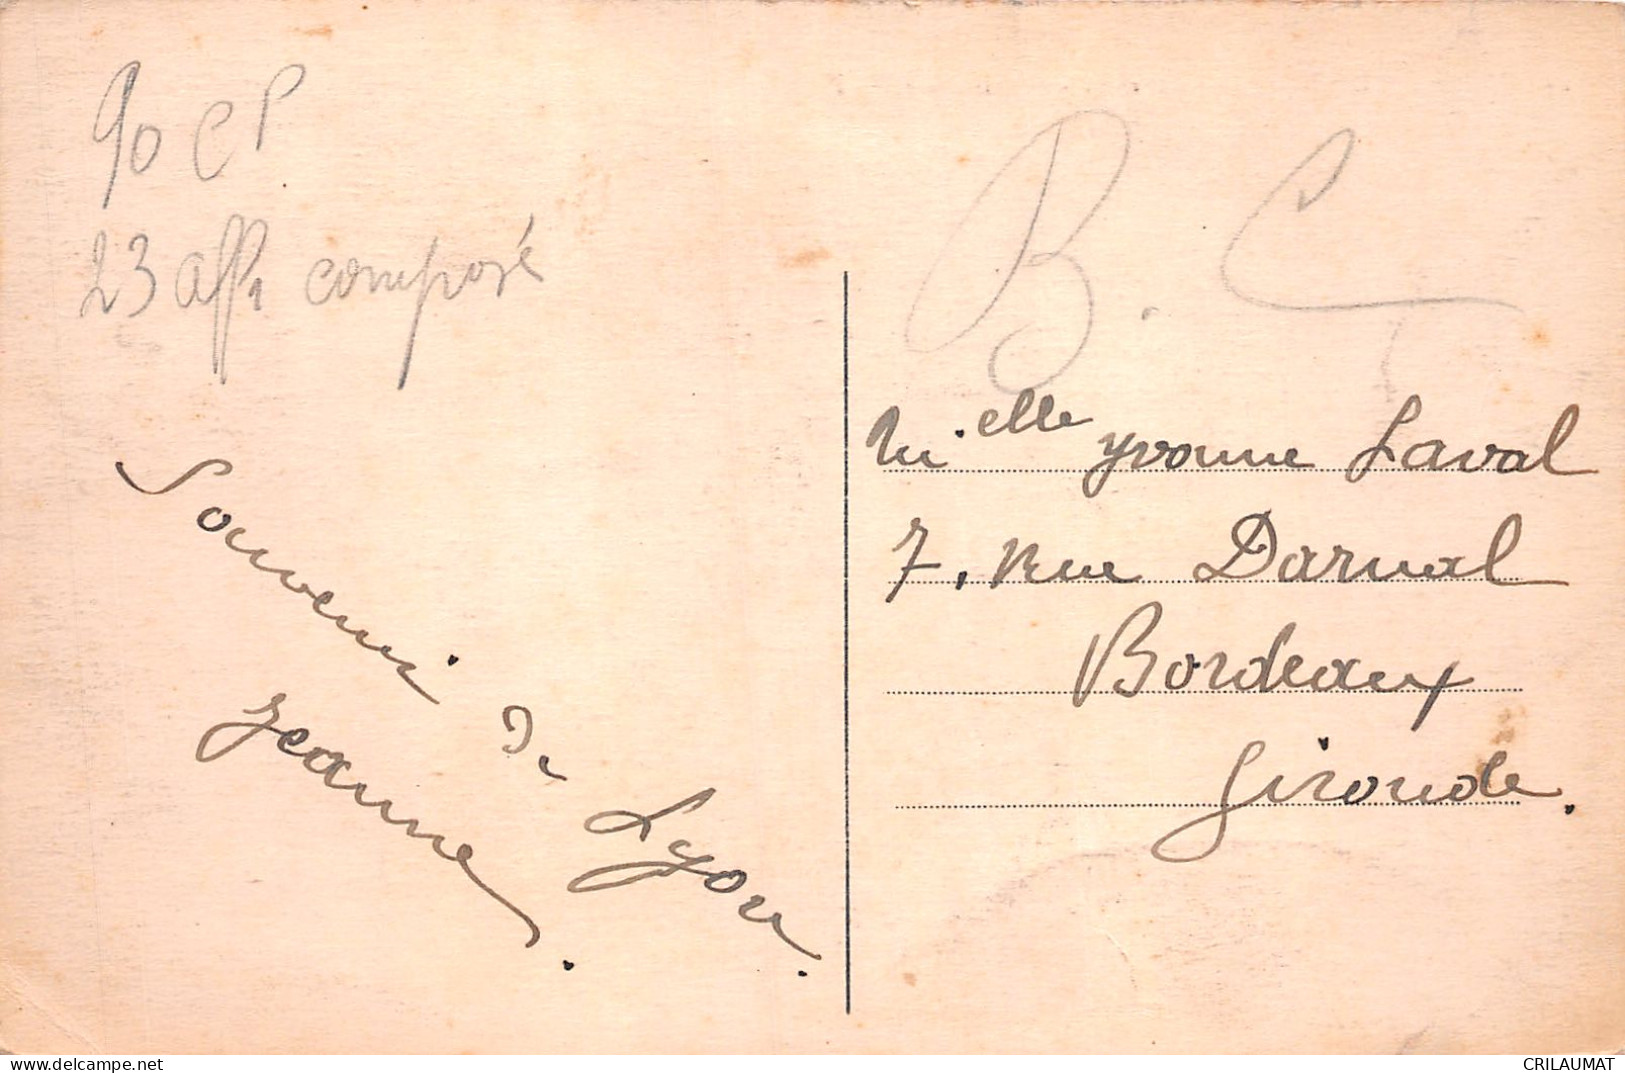 90 CP
23 aff. composé
B. C
Souvenir de Lyon.
Jeanne.
Melle Yvonne Laval
7, Rue Darnal
Bordeaux
Gironde.
delcampe.net
CRILAUMAT